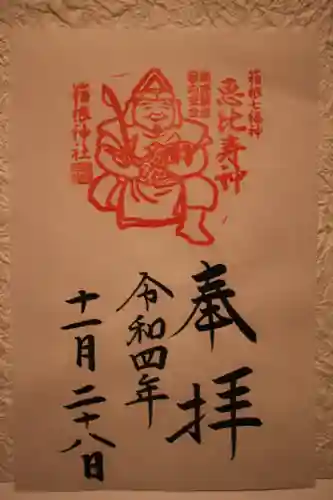 箱根七福神
恵比寿神
箱根神社
奉拝
令和四年
十一月二十八日